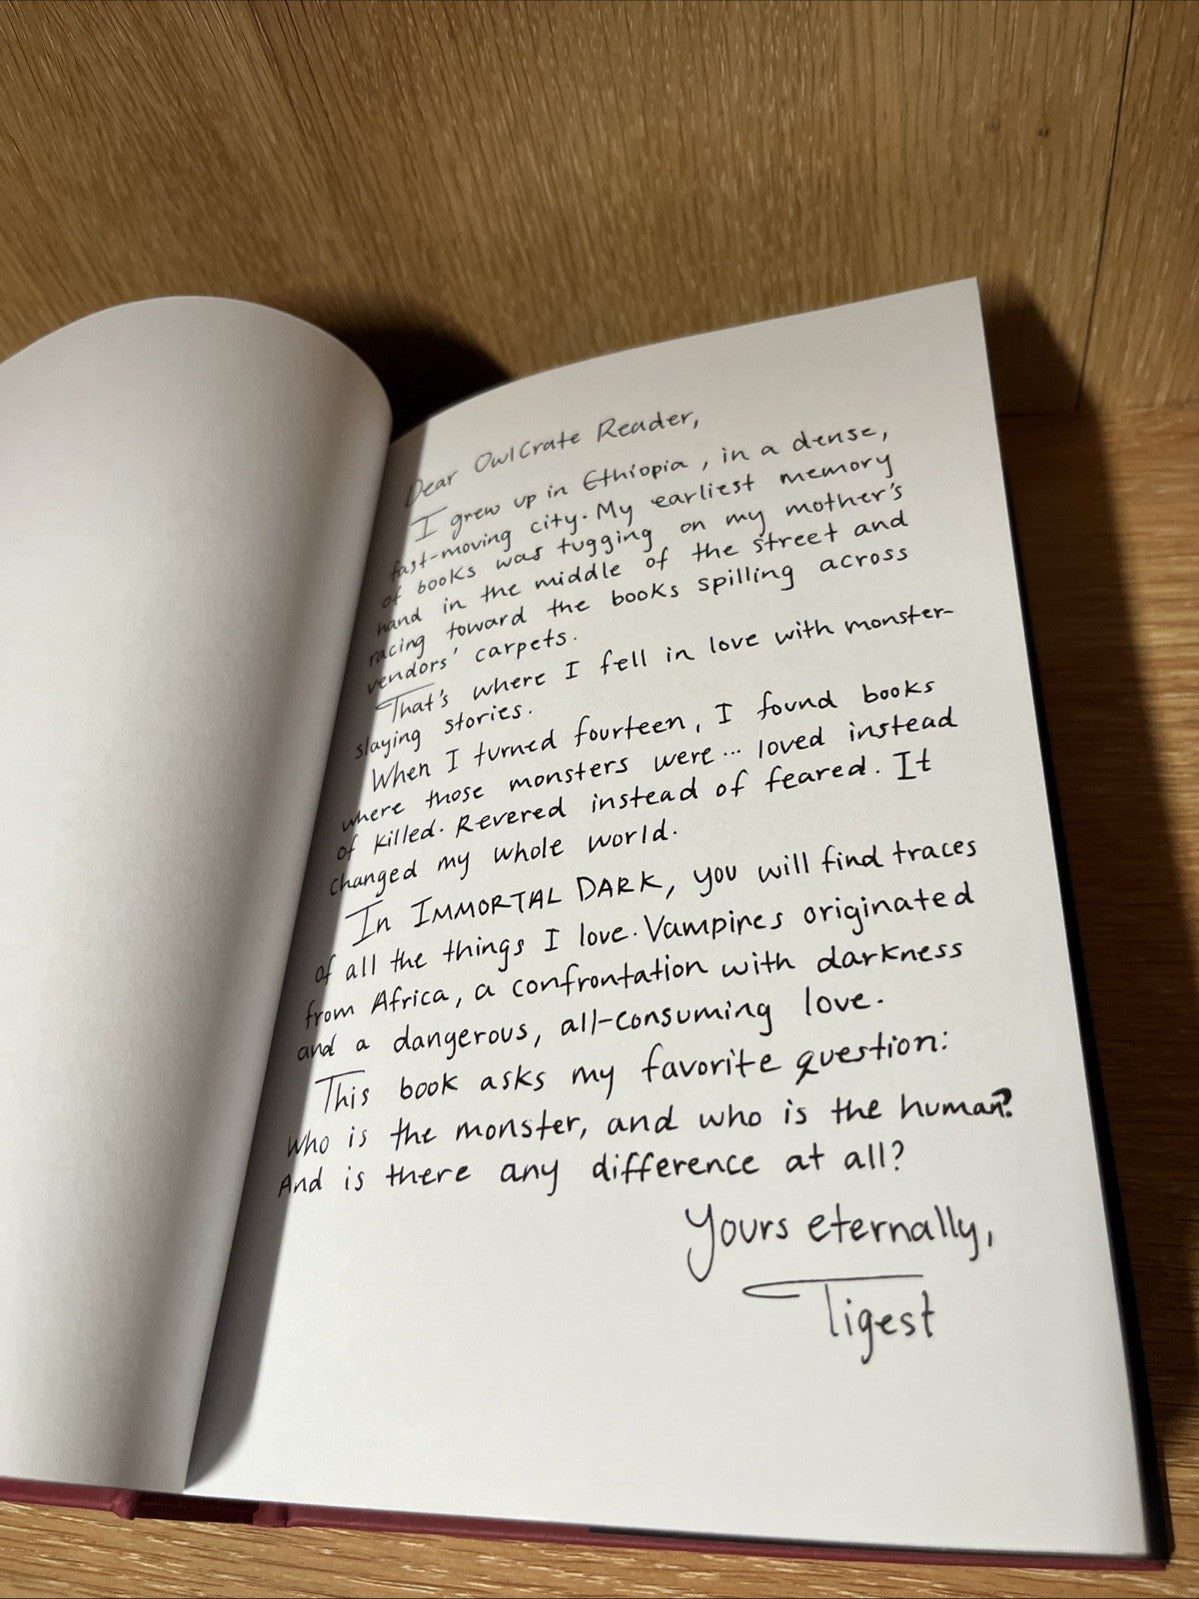 Dear OwlCrate Reader,
I grew up in Ethiopia, in a dense,
fast-moving city. My earliest memory
of books was tugging on my mother's
hand in the middle of the street and
racing toward the books spilling across
vendors' carpets.
That's where I fell in love with monster-
slaying stories.
When I turned fourteen, I found books
where those monsters were... loved instead
of killed. Revered instead of feared. It
changed my whole world.
In IMMORTAL DARK, you will find traces
of all the things I love. Vampires originated
from Africa, a confrontation with darkness
and a dangerous, all-consuming love.
This book asks my favorite question:
Who is the monster, and who is the human?
And is there any difference at all?
Yours eternally,
Tigest